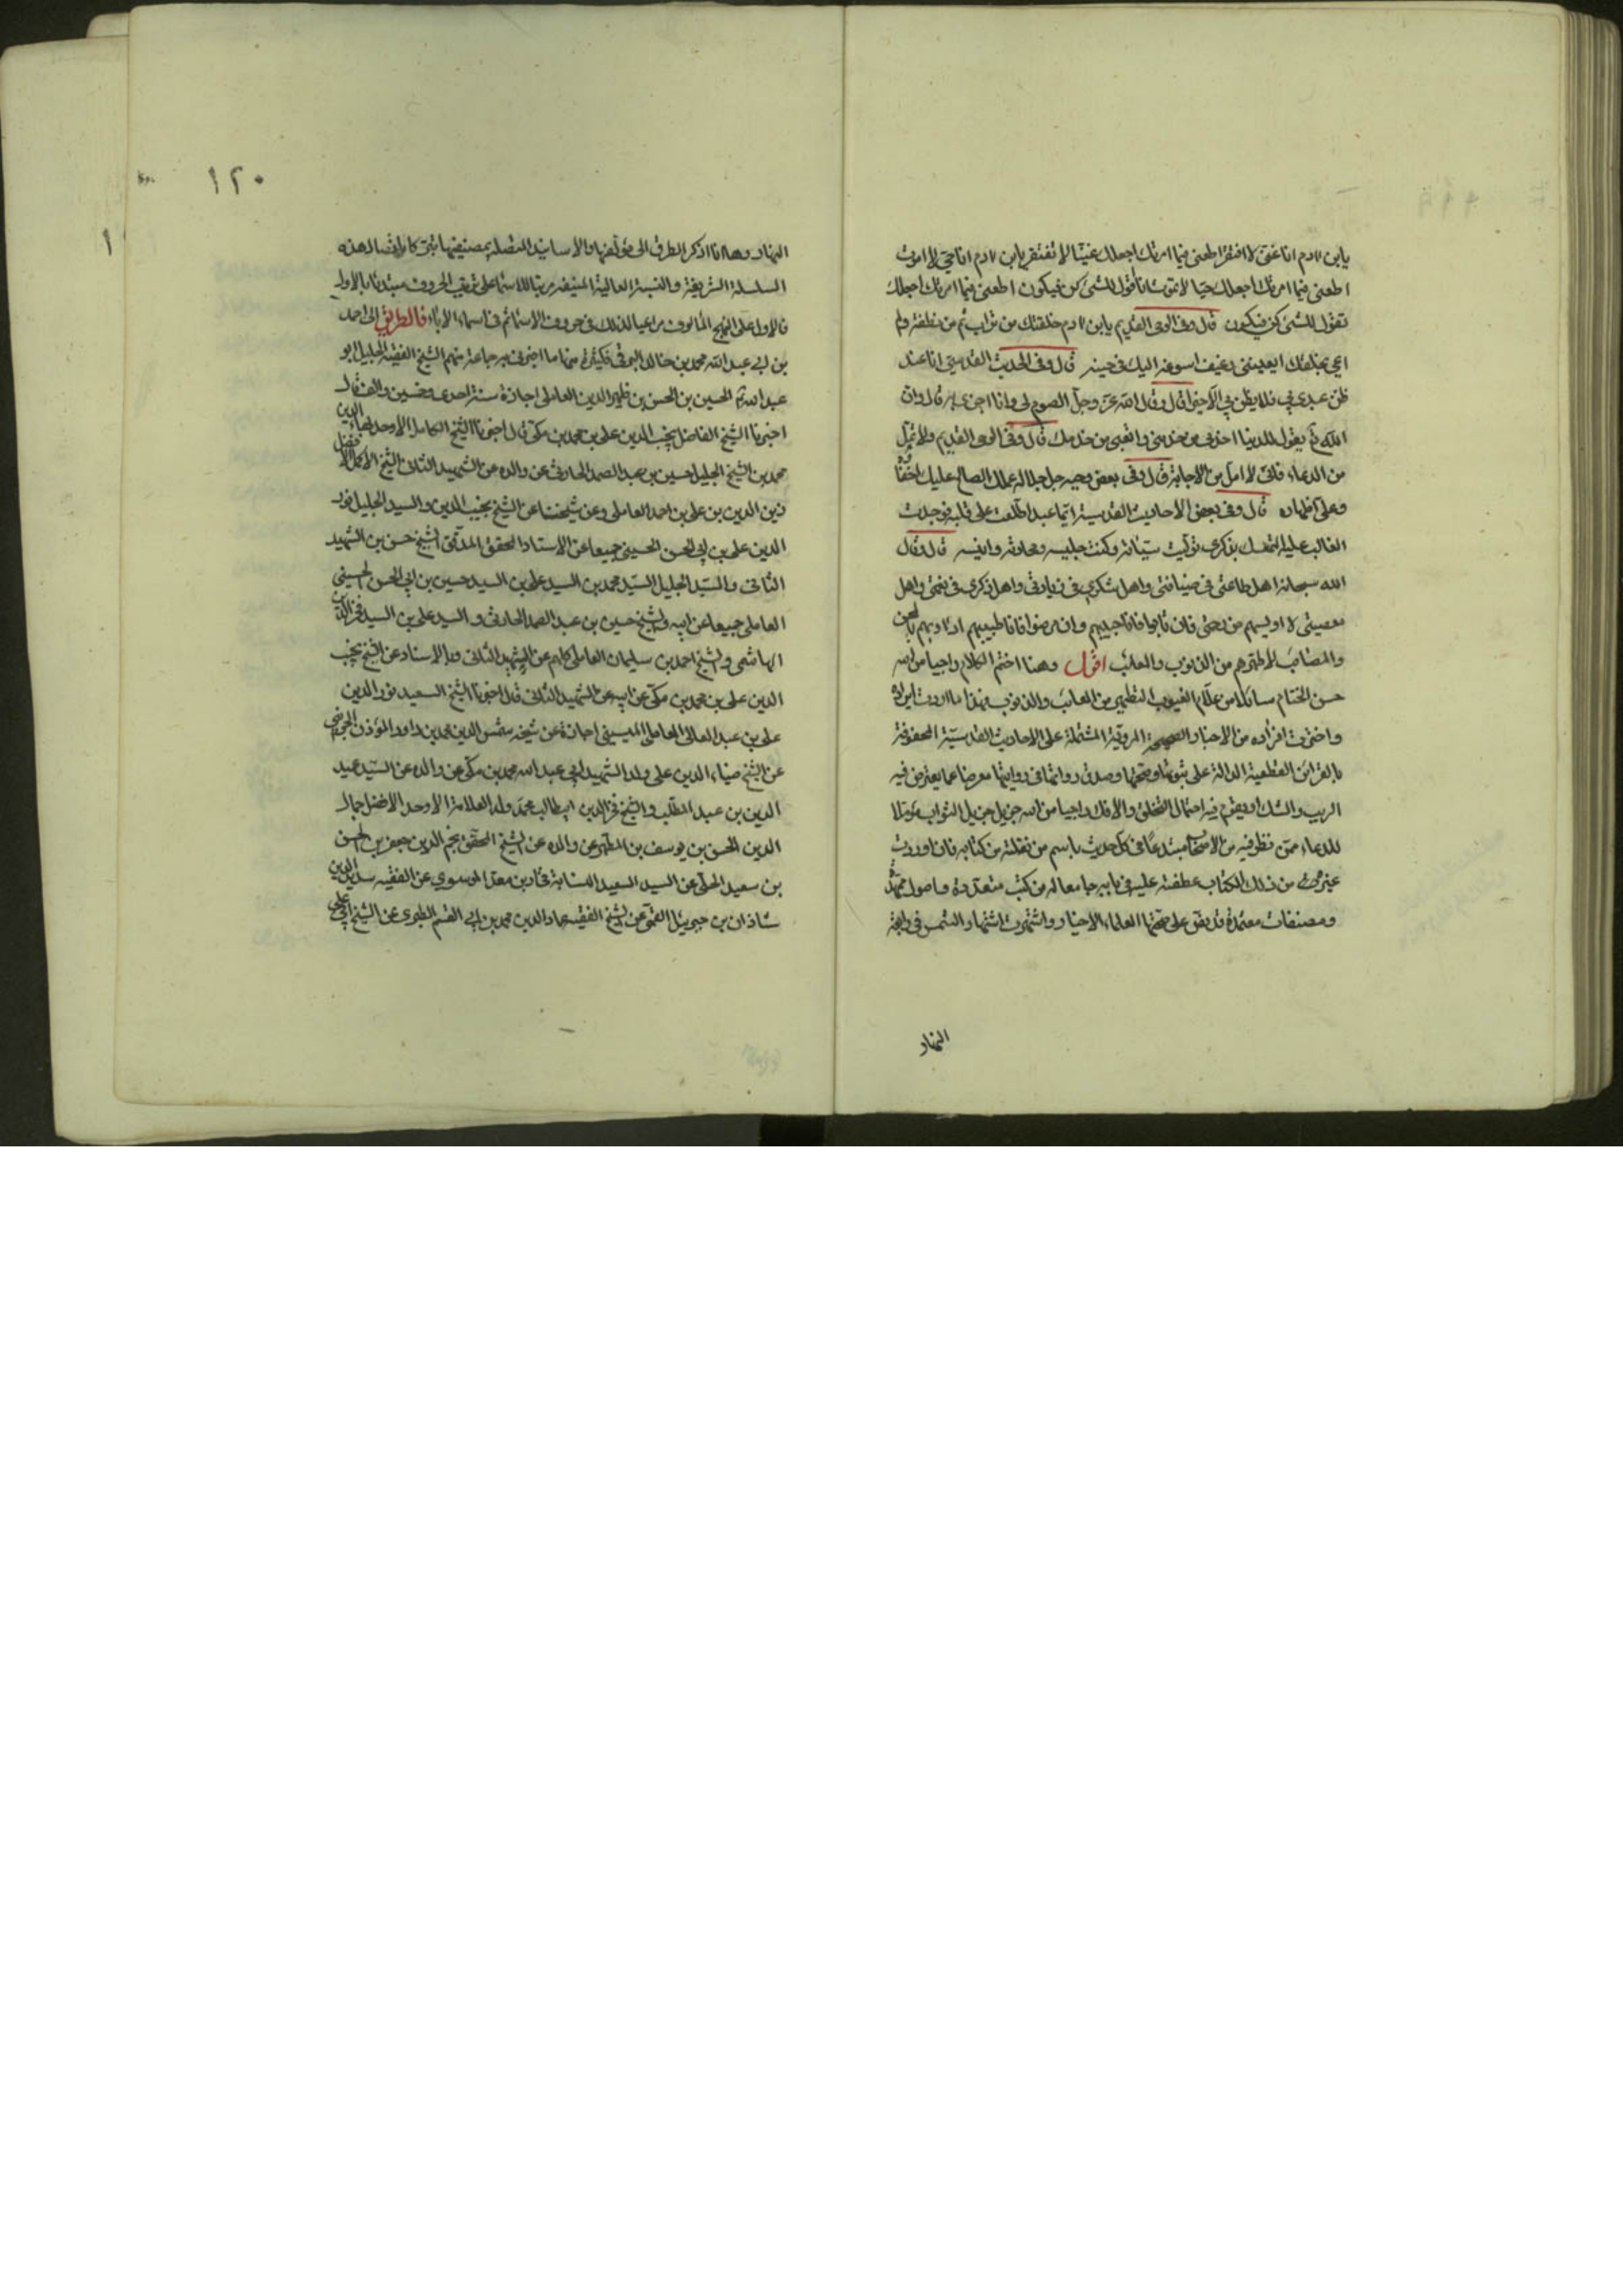 يابن ادم انا غني لا افتقر اطعني فيما امرتك اجعلك غنيا لا تفتقر يابن ادم انا حي لا اموت
اطعني فيما امرتك اجعلك حيا لا تموت انا اقول للشئ كن فيكون اطعني فيما امرتك اجعلك
تقول للشئ كن فيكون قال وفي الوحي القديم يابن ادم خلقتك من تراب ثم من نطفة ولم
اعي بخلقك ايعييني رغيف اسوقه اليك في حينه قال وفي الحديث القدسي انا عند
ظن عبدي بي فلا يظن بي الا خيرا قال وقال الله عز وجل الصوم لي وانا اجزي به قال وان
الله تع يقول للدنيا اخدمي من خدمني واتعبي من خدمك قال وفي الوحي القديم ولا تمل
من الدعاء فاني لا امل من الاجابة قال وفي بعض وحيه جل جلاله عملك الصالح عليك
وعلي اظهاره قال وفي بعض الاحاديث القدسية ايما عبد اطلعت على قلبه فوجدت
الغالب عليه التمسك بذكري توليت سياسته وكنت جليسه ومحادثه وانيسه قال وقال
الله سبحانه اهل طاعتي في ضيافتي واهل شكري في زيادتي واهل ذكري في نعمتي واهل
معصيتي لا اويسهم من رحمتي فان تابوا فانا حبيبهم وان مرضوا فانا طبيبهم اداويهم بالمحن
والمصائب لاطهرهم من الذنوب والمعائب اقول وهنا اختم الكلام راجيا من الله
حسن الختام سائلا من علام الغيوب التطهير من المعائب والذنوب فهذا ما اردت ايراده
واخترت افراده من الاخبار الصحيحة المروية المشتملة على الاحاديث القدسية المحفوفة
بالقرائن القطعية الدالة على ثبوتها وصحتها وصدق رواتها في روايتها معرضا عما يعترض فيه
الريب والشك او يقوم فيه احتمال التخلق والافك راجيا من الله جزيل جزيل الثواب مؤملا
للدعاء ممن نظر فيه من الاصحاب مبتدئا في كل حديث باسم من نقلته من كتابه فان اوردت
غيره من ذلك الكتاب عطفته عليه في بابه جامعا له من كتب متعددة واصول ممهدة
ومصنفات معتمدة قد اتفق على صحتها العلماء الاخيار واشتهرت اشتهار الشمس في رابعة
النهار
١٢٠
النهار وها انا اذكر الطرق الى مؤلفيها والاسانيد المتصلة بمصنفيها تبركا باتصال هذه
السلسلة الشريفة والنسبة العالية المنيفة مرتبا للاسماء على ترتيب الحروف مبتدئا بالاول
فالاول على النهج المألوف مراعيا لذلك في حروف الاسماء ثم في اسماء الاباء فالطريق الى احمد
بن ابي عبد الله محمد بن خالد البرقي فكثيرة منها ما اخبرني به جماعة منهم الشيخ الفقيه الجليل ابو
عبد الله الحسين بن الحسن بن ظهير الدين العاملي اجازة سنة احدى وخمسين والف قال
اخبرنا الشيخ الفاضل نجيب الدين علي بن محمد بن مكي قال اخبرنا الشيخ الكامل الاوحد بهاء الدين
محمد بن الشيخ الجليل حسين بن عبد الصمد الحارثي عن والده عن الشهيد الثاني الشيخ الاكمل الافضل
زين الدين بن علي بن احمد العاملي وعن شيخنا عن الشيخ نجيب الدين والسيد الجليل نور
الدين علي بن ابي الحسن الحسيني جميعا عن الاستاد المحقق المدقق الشيخ حسن بن الشهيد
الثاني والسيد الجليل السيد محمد بن السيد علي بن السيد حسين بن ابي الحسن الحسيني
العاملي جميعا عن ابيه والشيخ حسين بن عبد الصمد الحارثي والسيد علي بن السيد فخر الدين
الهاشمي والشيخ احمد بن سليمان العاملي كلهم عن الشهيد الثاني وبالاسناد عن الشيخ نجيب
الدين علي بن محمد بن مكي عن ابيه عن الشهيد الثاني قال اخبرنا الشيخ السعيد نور الدين
علي بن عبد العالي العاملي الميسي اجازة عن شيخه شمس الدين محمد بن داود المؤذن الجزيني
عن الشيخ ضياء الدين علي ولد الشهيد ابي عبد الله محمد بن مكي عن والده عن السيد عميد
الدين بن عبد المطلب والشيخ فخر الدين ابي طالب محمد ولد العلامة الاوحد الافضل جمال
الدين الحسن بن يوسف بن المطهر عن والده عن الشيخ المحقق نجم الدين جعفر بن الحسن
بن سعيد الحلي عن السيد السعيد النسابة فخار بن معد الموسوي عن الفقيه سديد الدين
شاذان بن جبريل القمي عن الشيخ الفقيه عماد الدين محمد بن ابي القسم الطبري عن الشيخ ابي علي